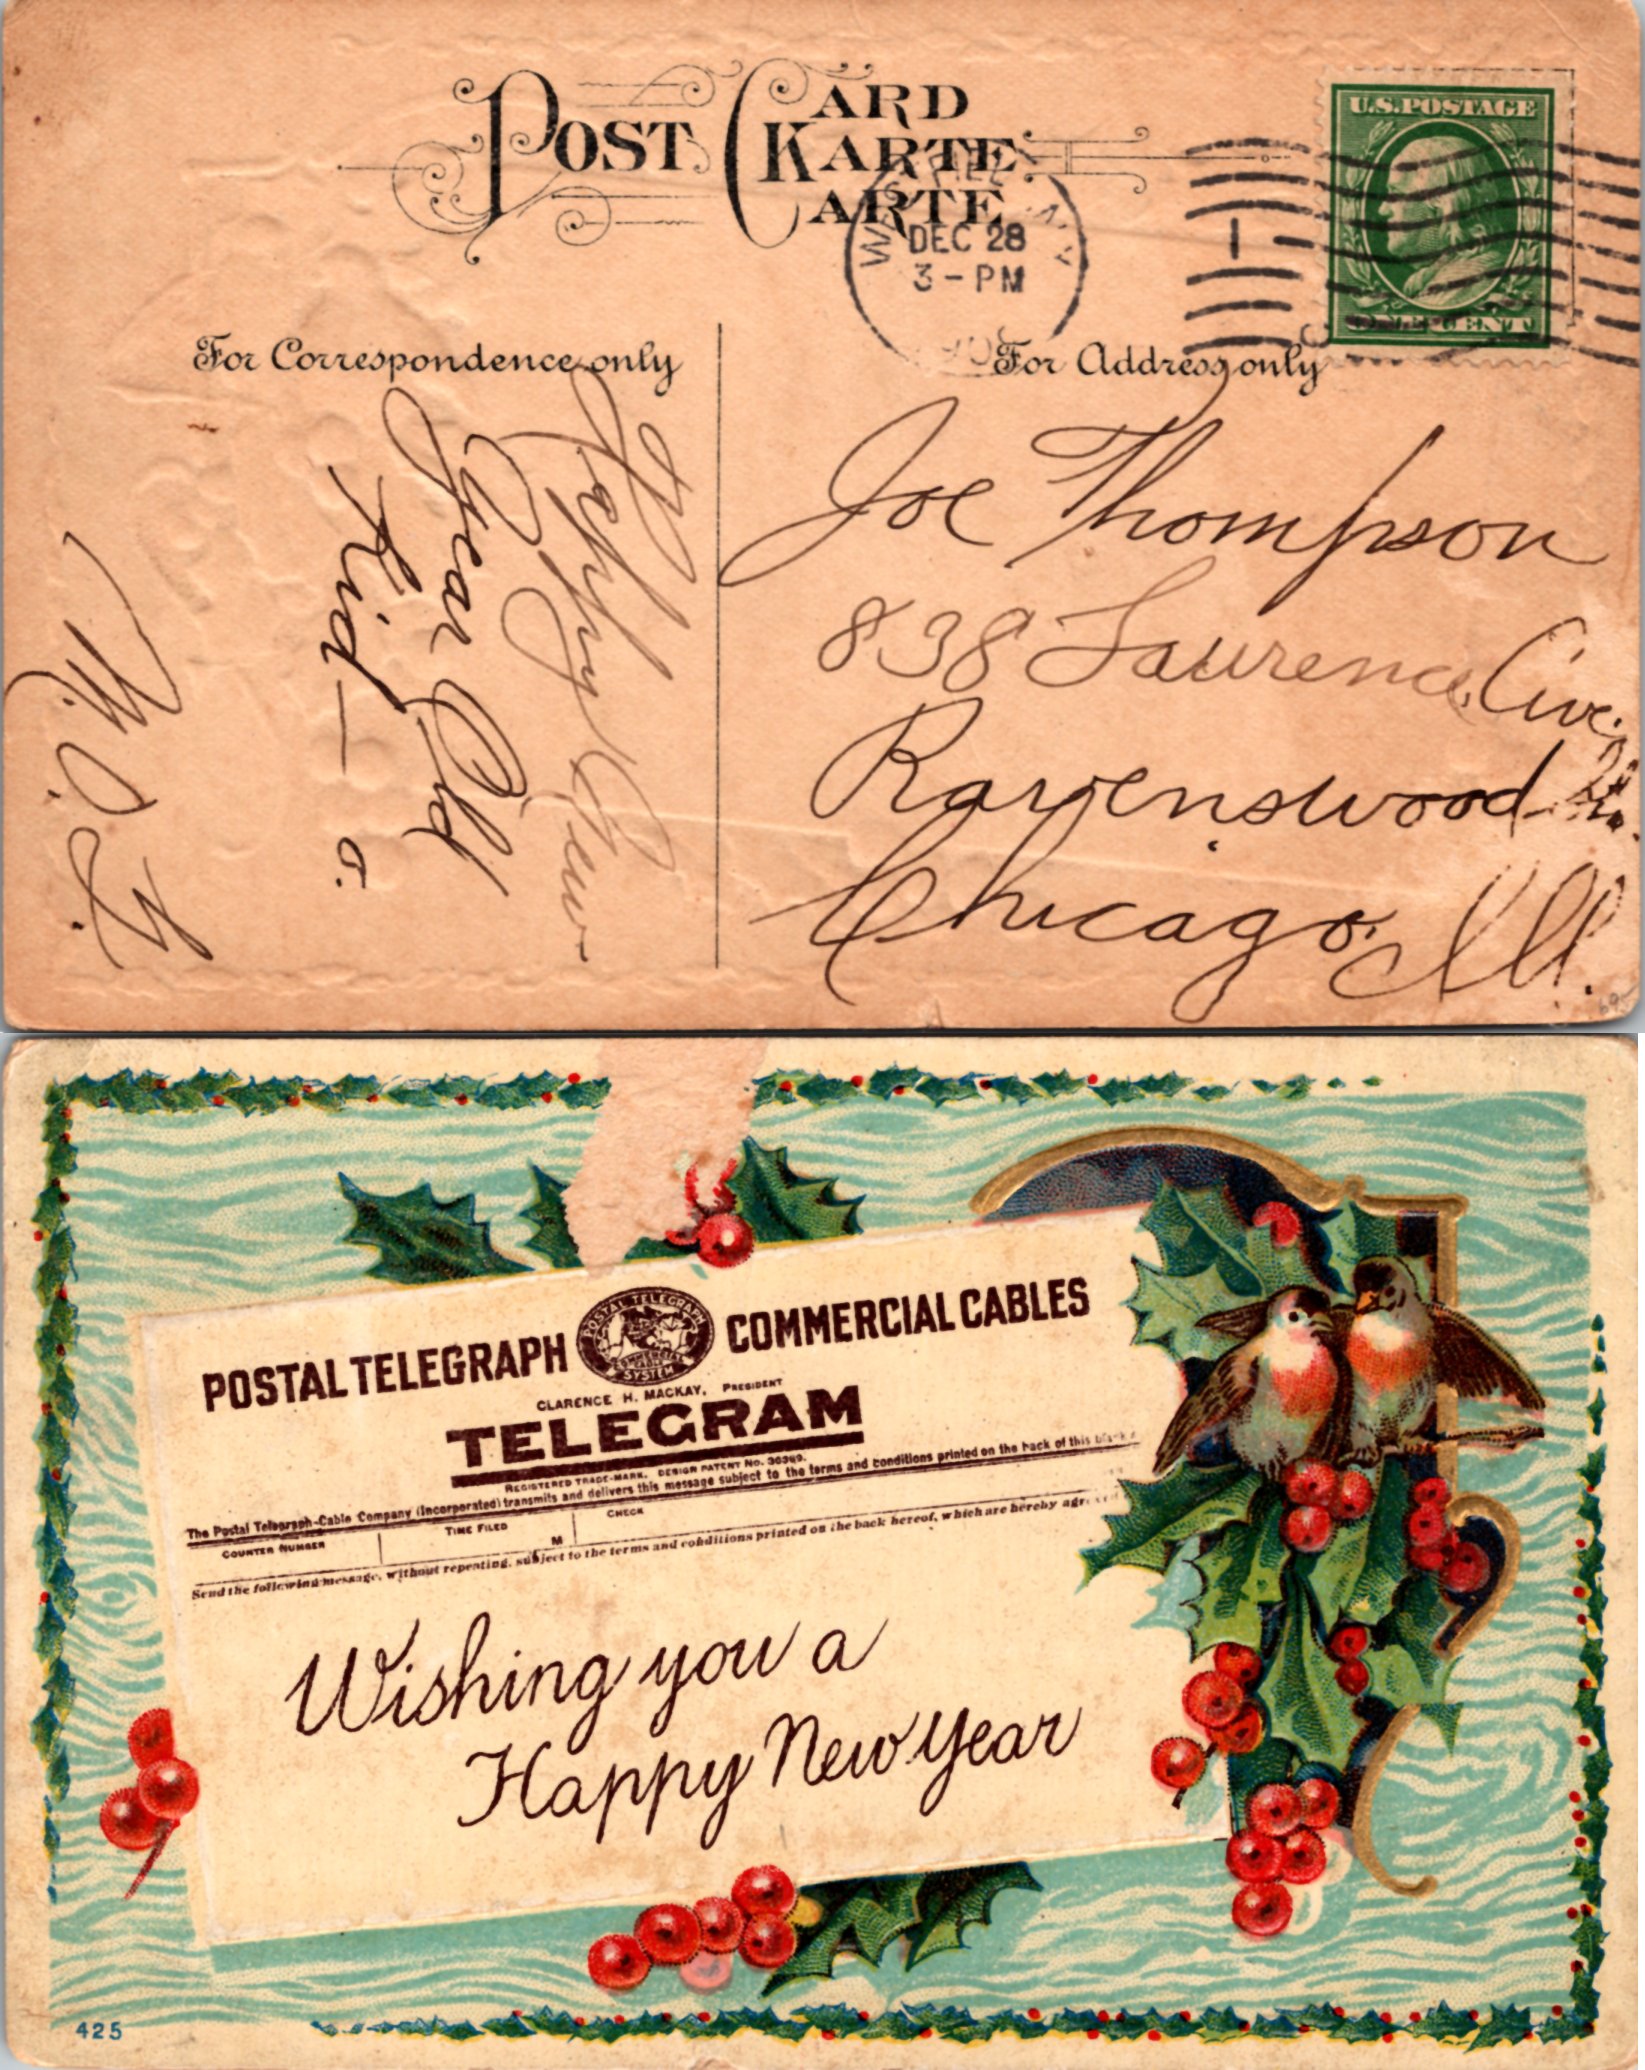 POST CARD
KARTE
CARTE
U.S. POSTAGE
ONE CENT
WESTFIELD N.Y.
DEC 28
3-PM
1
For Correspondence only
For Address only
Happy New
Year Old
Kid —
Joe Thompson
838 Laurence Ave.
Ravenswood
Chicago. Ill.
POSTAL TELEGRAPH COMMERCIAL CABLES
POSTAL TELEGRAPH
COMMERCIAL CABLES
SYSTEM
CLARENCE H. MACKAY, PRESIDENT
TELEGRAM
REGISTERED TRADE-MARK. DESIGN PATENT No. 36369.
The Postal Telegraph-Cable Company (Incorporated) transmits and delivers this message subject to the terms and conditions printed on the back of this blank
COUNTER NUMBER TIME FILED M CHECK
Send the following message, without repeating, subject to the terms and conditions printed on the back hereof, which are hereby agreed
Wishing you a
Happy New Year
425